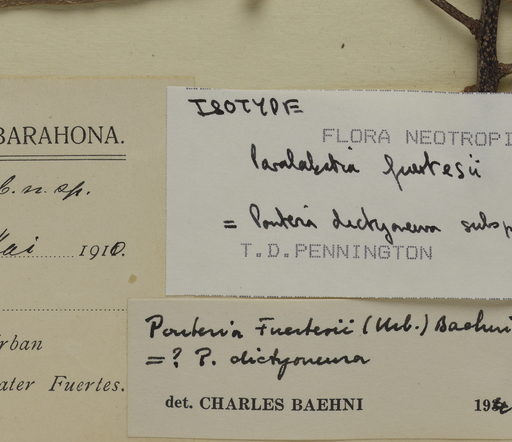 BARAHONA.
n. sp.
1910.
Urban
ater Fuertes.
ISOTYPE
FLORA NEOTROPI
Paralabatia fuertesii
= Pouteria dictyoneura subsp
T.D.PENNINGTON
Pouteria Fuertesii (Urb.) Baehni
=? P. dictyoneura
det. CHARLES BAEHNI 19